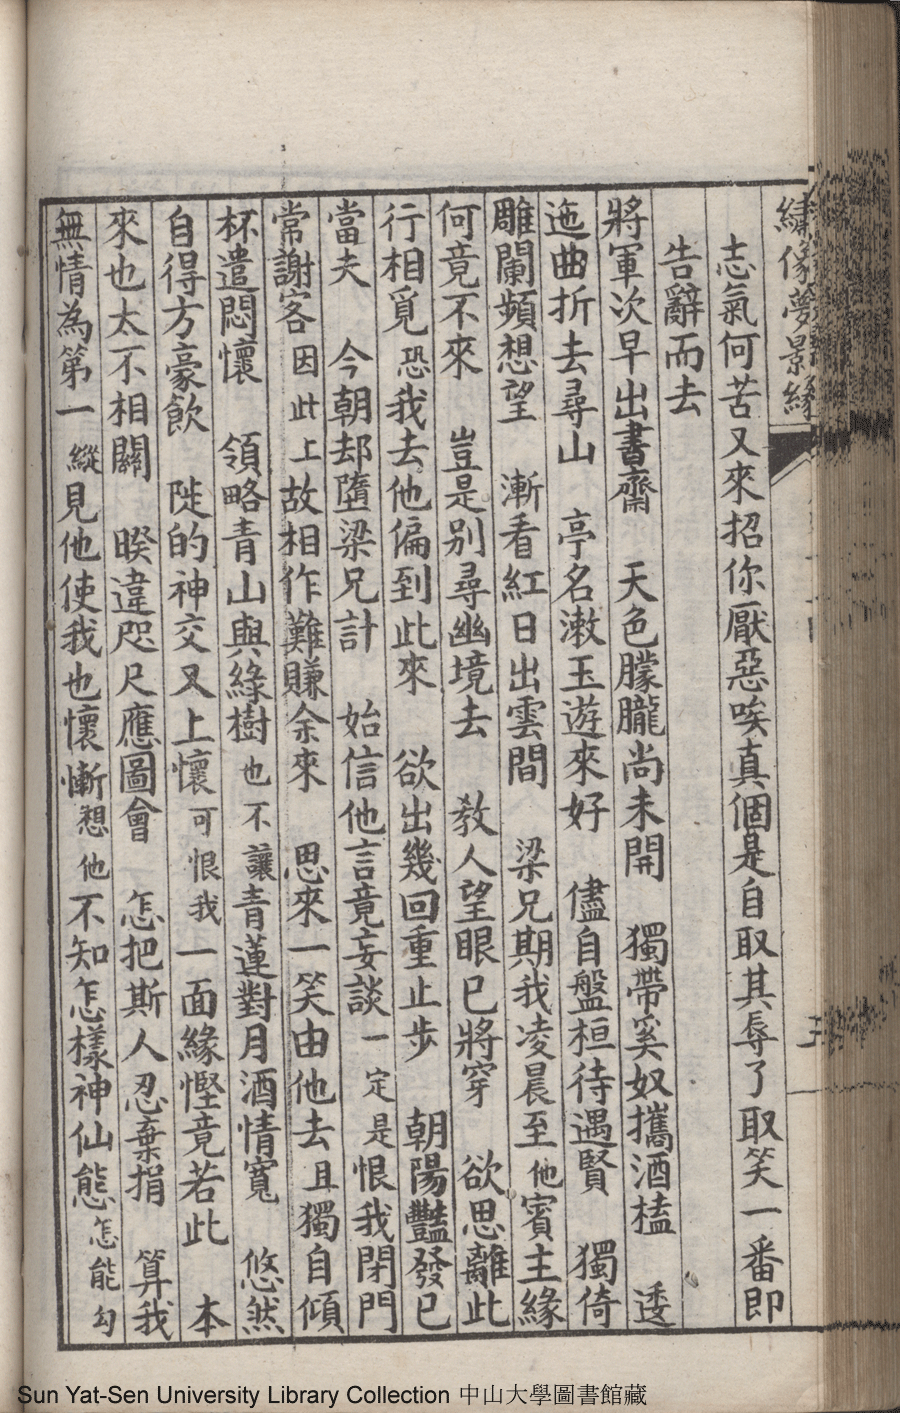 繡像夢景緣
志氣何苦又來招你厭惡唉真個是自取其辱了取笑一番即
告辭而去
將軍次早出書齋　天色朦朧尚未開　獨帶奚奴攜酒榼　逶
迤曲折去尋山　亭名漱玉遊來好　儘自盤桓待遇賢　獨倚
雕闌頻想望　漸看紅日出雲間　梁兄期我凌晨至他賓主緣
何竟不來　豈是別尋幽境去　教人望眼已將穿　欲思離此
行相覓恐我去他偏到此來　欲出幾回重止步　朝陽豔發已
當夫　今朝却墮梁兄計　始信他言竟妄談一定是恨我閉門
常謝客因此上故相作難賺余來　思來一笑由他去且獨自傾
杯遣悶懷　領略青山與綠樹也不讓青蓮對月酒情寬　悠然
自得方豪飲　陡的神交又上懷可恨我一面緣慳竟若此　本
來也太不相關　暌違咫尺應圖會　怎把斯人忍棄捐　算我
無情為第一縱見他使我也懷慚想他不知怎樣神仙態怎能勾
Sun Yat-Sen University Library Collection 中山大學圖書館藏